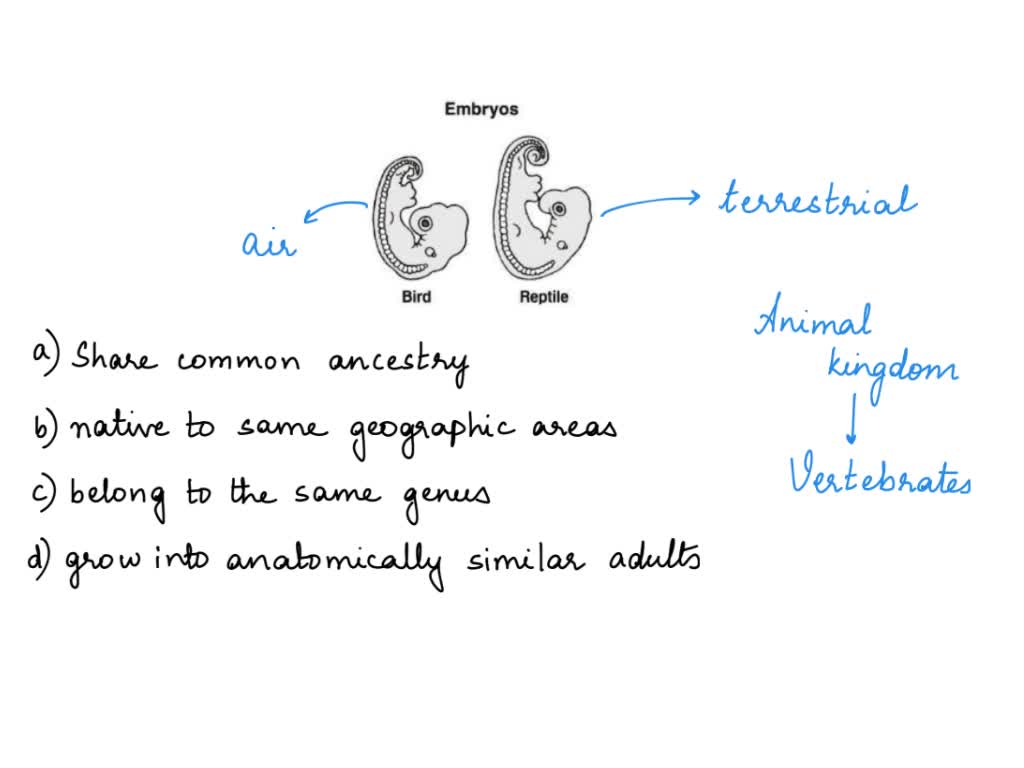 Embryos
air
terrestrial
Bird
Reptile
Animal
kingdom
Vertebrates
a) Share common ancestry
b) native to same geographic areas
c) belong to the same genus
d) grow into anatomically similar adults